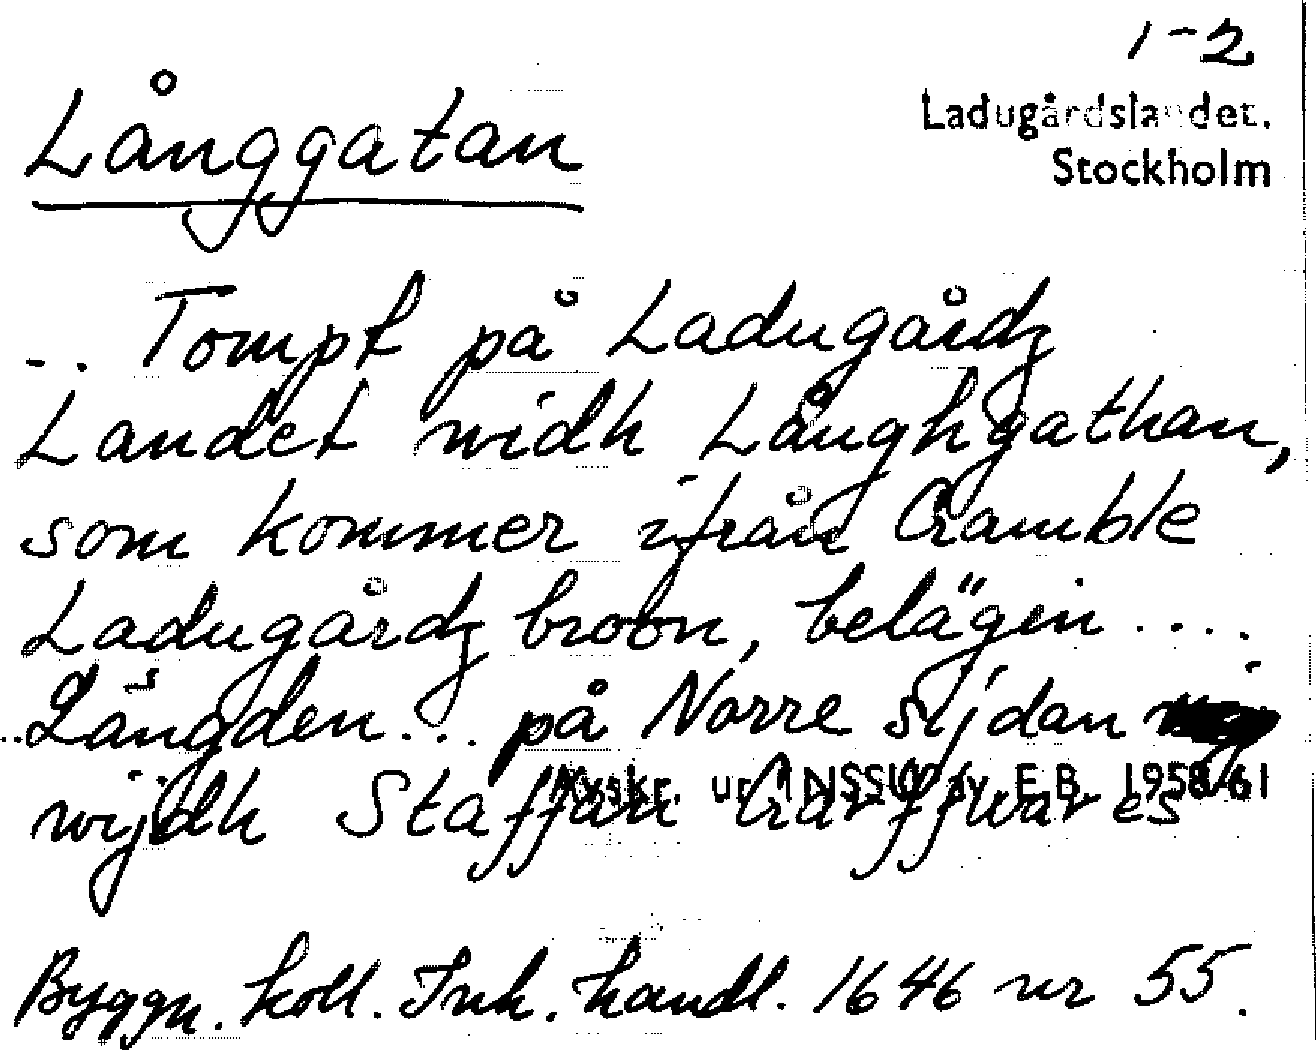 1-2
Ladugårdslandet.
Stockholm
Långgatan
... Tompt på Ladugårdz
Landet widh Långhgathan,
som kommer ifrån Gamble
Ladugårdz broon, belägen ....
... Längden ... på Norre sijdan
wijdh Staffan
Avskr. ur INSSU av E.B. 1958/61
Byggn. koll. Ink. handl. 1646 nr 55.